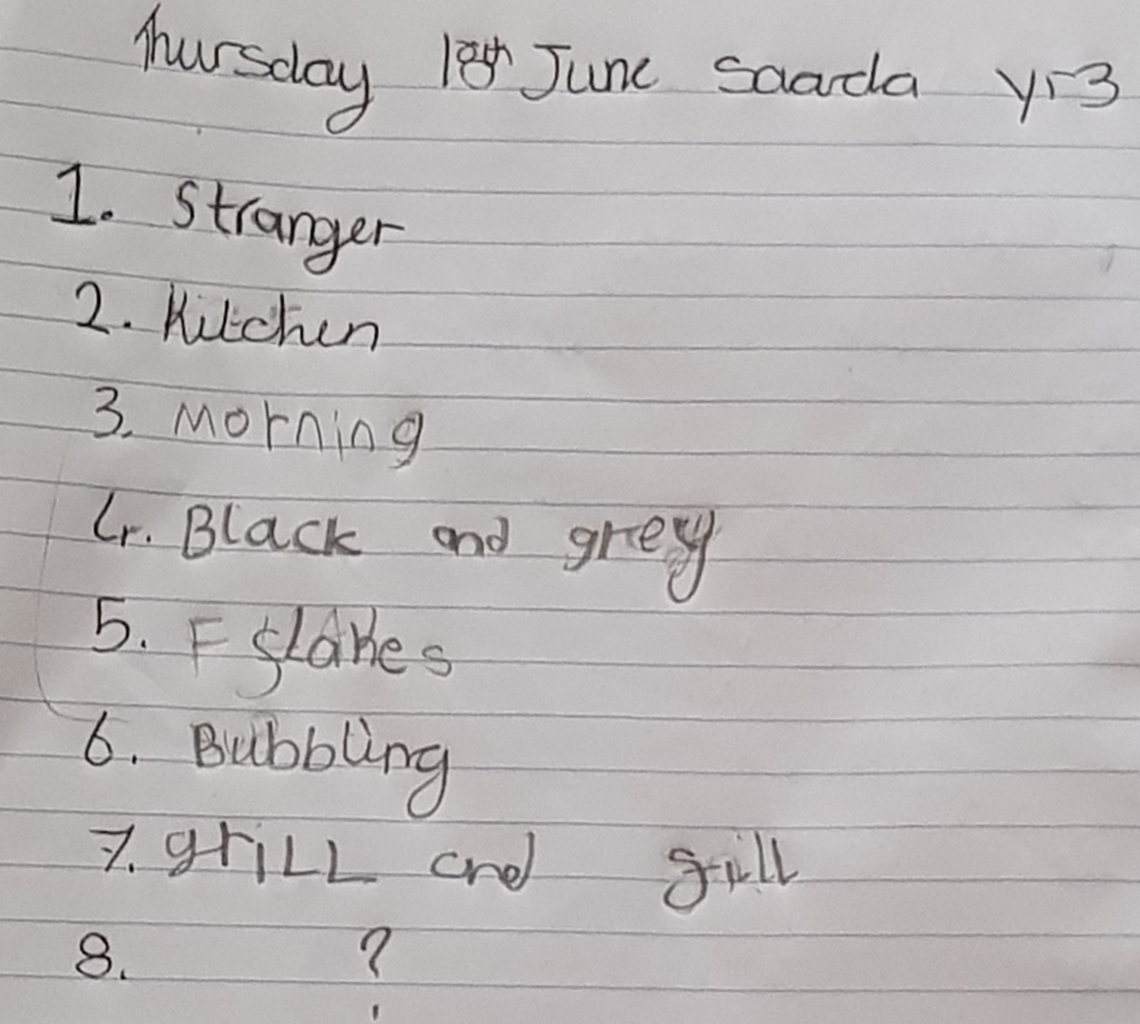 Thursday 18th June Saarda yr3
1. Stranger
2. Kitchen
3. Morning
4. Black and grey
5. F flakes
6. Bubbling
7. grill and grill
8. ?